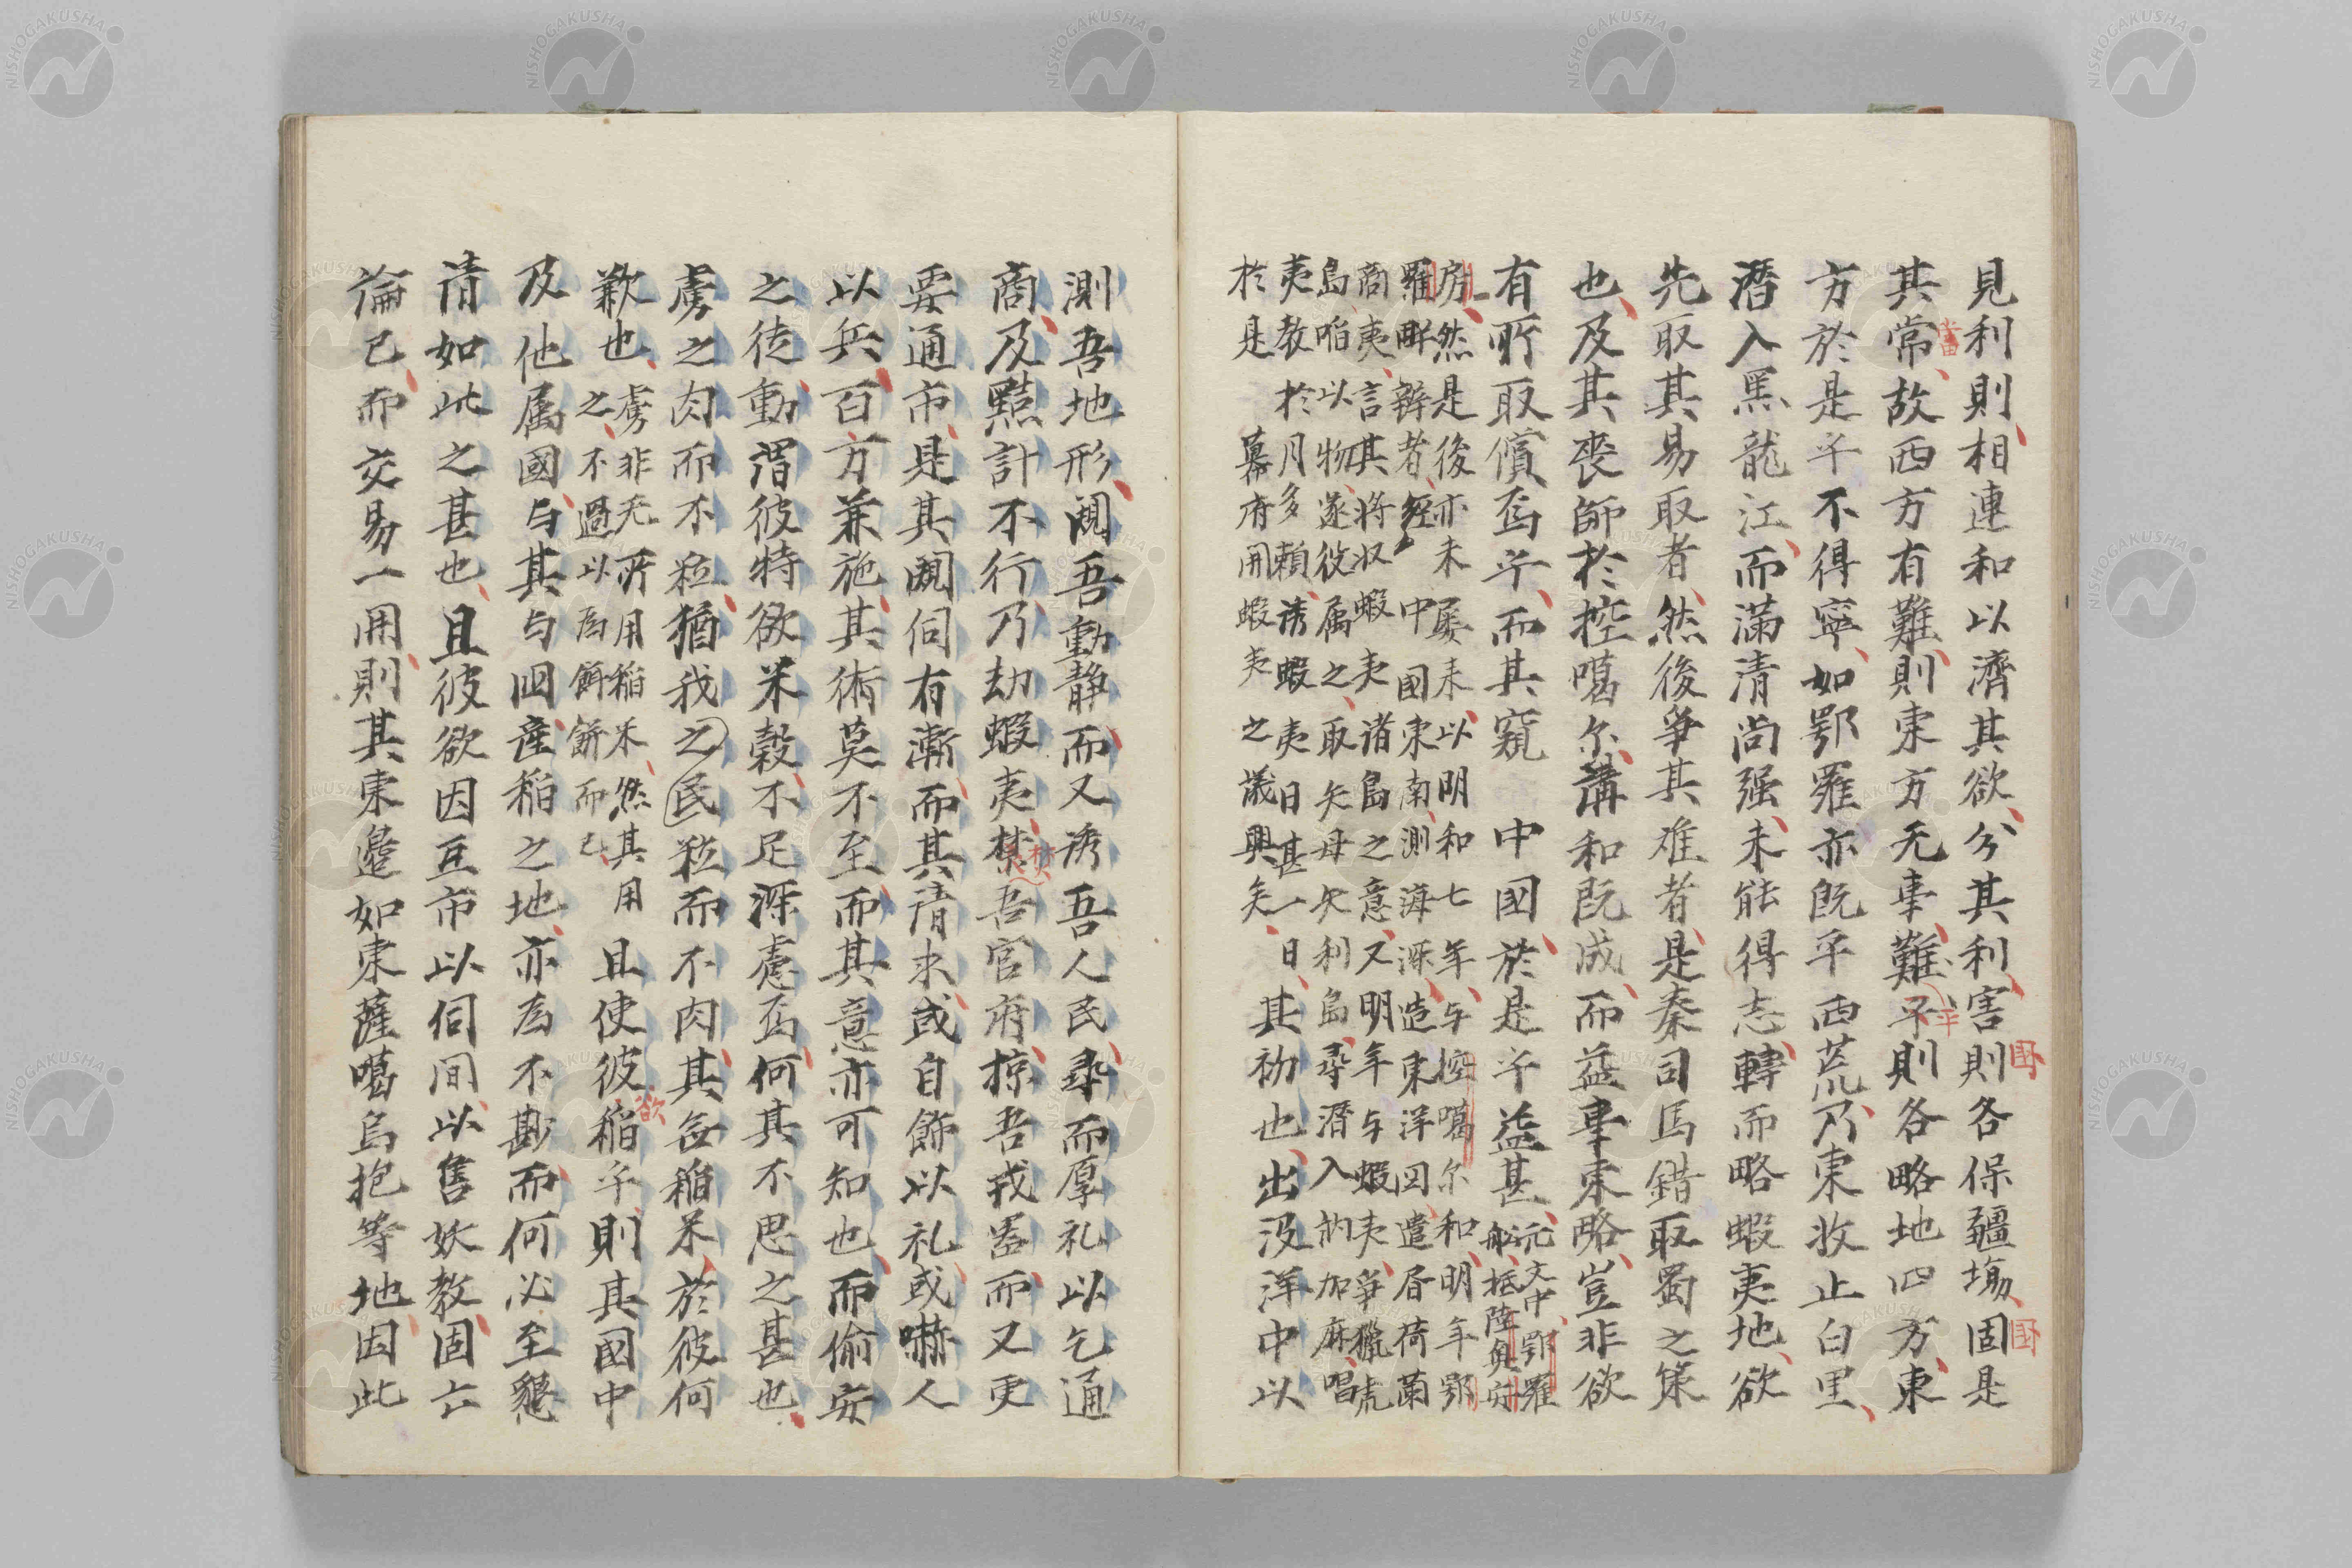 見利則相連和以濟其欲分其利害則各保疆場固是
其常故西方有難則東方无事難平則各略地四方東
方於是乎不得寧如鄂羅亦既平西荒乃東收止白里
潛入黑龍江而滿清尚强未能得志轉而略蝦夷地欲
先取其易取者然後爭其难者是秦司馬錯取蜀之策
也及其喪師於控噶尔講和既成而益事東略豈非欲
有所取償焉乎而其窺 中國於是乎益甚
元文中鄂羅
舩抵陸奥安
房然是後亦未屡来以明和七年与控噶尔和明年鄂
羅畔辨者經 中國東南測海深造東洋図遣唇荷蘭
商夷言其将収蝦夷诸島之意又明年与蝦夷爭獵虎
島啗以物遂役属之取矢母矢利島尋潛入訥加麻唱
夷教於月多頼誘蝦夷日甚一日
於是 幕府開蝦夷之議興矣
其初也出没洋中以
測吾地形闚吾動静而又诱吾人民尋而厚礼以乞通
商及黠計不行乃劫蝦夷焚吾官府掠吾戎器而又更
要通市是其闚伺有漸而其清求或自飾以礼或嚇人
以兵百方兼施其術莫不至而其意亦可知也而偷安
之徒動謂彼特欲米穀不足深慮焉何其不思之甚也
虜之肉而不粒猶我之民粒而不肉其無稲米於彼何
歉也
虜非无所用稲米然其用
之不過以為餌餅而已
且使彼欲稲乎則其國中
及他属國与其与国産稲之地亦為不尠而何必至懇
清如此之甚也且彼欲因互市以伺間以售妖教固亡
論已而交易一開則其東邉如東薩噶烏抱等地因此
NISHOGAKUSHA